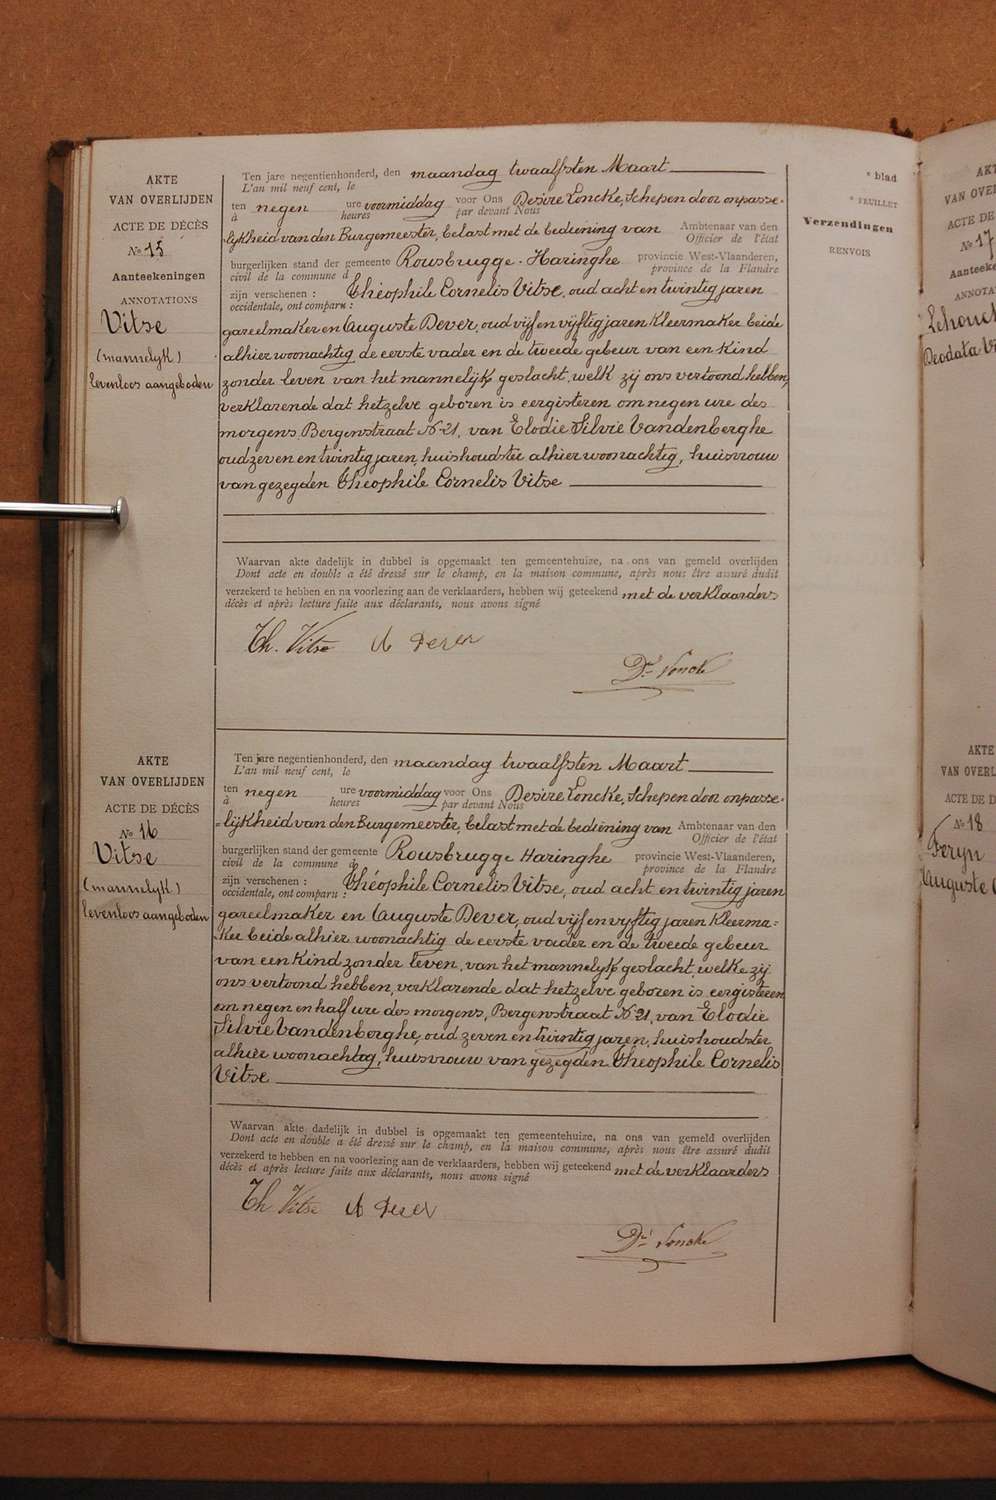 AKTE
VAN OVERLIJDEN
ACTE DE DÉCÈS
No 15
Aanteekeningen
ANNOTATIONS
Vitse
(mannelyk)
levenloos aangeboden
Ten jare negentienhonderd, den maandag twaalfsten Maart
L'an mil neuf cent, le
ten negen ure voormiddag voor Ons Desire Loncke, Schepen door onpasse-
à heures par devant Nous
lijkheid van den Burgemeester, belast met de bediening van Ambtenaar van den
Officier de l'état
burgerlijken stand der gemeente Rousbrugge-Haringhe provincie West-Vlaanderen,
civil de la commune d province de la Flandre
zijn verschenen : Théophile Cornelis Vitse, oud acht en twintig jaren
occidentale, ont comparu :
gareelmaker en Auguste Dever, oud vijf en vijftig jaren kleermaker beide
alhier woonachtig de eerste vader en de tweede gebeur van een kind
zonder leven van het mannelijk geslacht, welk zij ons vertoond hebben,
verklarende dat hetzelve geboren is eergisteren om negen ure des
morgens, Bergenstraat No 21, van Elodie Silvie Vandenberghe
oud zeven en twintig jaren, huishoudster alhier woonachtig, huisvrouw
van gezegden Theophile Cornelis Vitse
Waarvan akte dadelijk in dubbel is opgemaakt ten gemeentehuize, na ons van gemeld overlijden
Dont acte en double a été dressé sur le champ, en la maison commune, après nous être assuré dudit
verzekerd te hebben en na voorlezing aan de verklaarders, hebben wij geteekend met de verklaarders
décès et après lecture faite aux déclarants, nous avons signé
Th. Vitse A Dever
Dr Loncke
AKTE
VAN OVERLIJDEN
ACTE DE DÉCÈS
No 16
Vitse
(mannelyk)
levenloos aangeboden
Ten jare negentienhonderd, den maandag twaalfsten Maart
L'an mil neuf cent, le
ten negen ure voormiddag voor Ons Desire Loncke, Schepen door onpasse-
à heures par devant Nous
=lijkheid van den Burgemeester, belast met de bediening van Ambtenaar van den
Officier de l'état
burgerlijken stand der gemeente Rousbrugge Haringhe provincie West-Vlaanderen,
civil de la commune d province de la Flandre
zijn verschenen : Théophile Cornelis Vitse, oud acht en twintig jaren
occidentale, ont comparu :
gareelmaker en Auguste Dever, oud vijf en vyftig jaren kleerma=
ker beide alhier woonachtig de eerste vader en de tweede gebeur
van een kind zonder leven, van het mannelyk geslacht, welke zij
ons vertoond hebben, verklarende dat hetzelve geboren is eergisteren
om negen en half ure des morgens, Bergenstraat No 21, van Elodie
Silvie Vandenberghe, oud zeven en twintig jaren, huishoudster
alhier woonachtig, huisvrouw van gezegden Theophile Cornelis
Vitse
Waarvan akte dadelijk in dubbel is opgemaakt ten gemeentehuize, na ons van gemeld overlijden
Dont acte en double a été dressé sur le champ, en la maison commune, après nous être assuré dudit
verzekerd te hebben en na voorlezing aan de verklaarders, hebben wij geteekend met de verklaarders
décès et après lecture faite aux déclarants, nous avons signé
Th Vitse A Dever
Dr Loncke
e blad
e FEUILLET
Verzendingen
RENVOIS
AKT
VAN OVER
ACTE DE
No 17
Aanteeke
ANNOTA
Deodata Vi
AKTE
VAN OVERL
ACTE DE D
No 18
Feryn
Auguste C